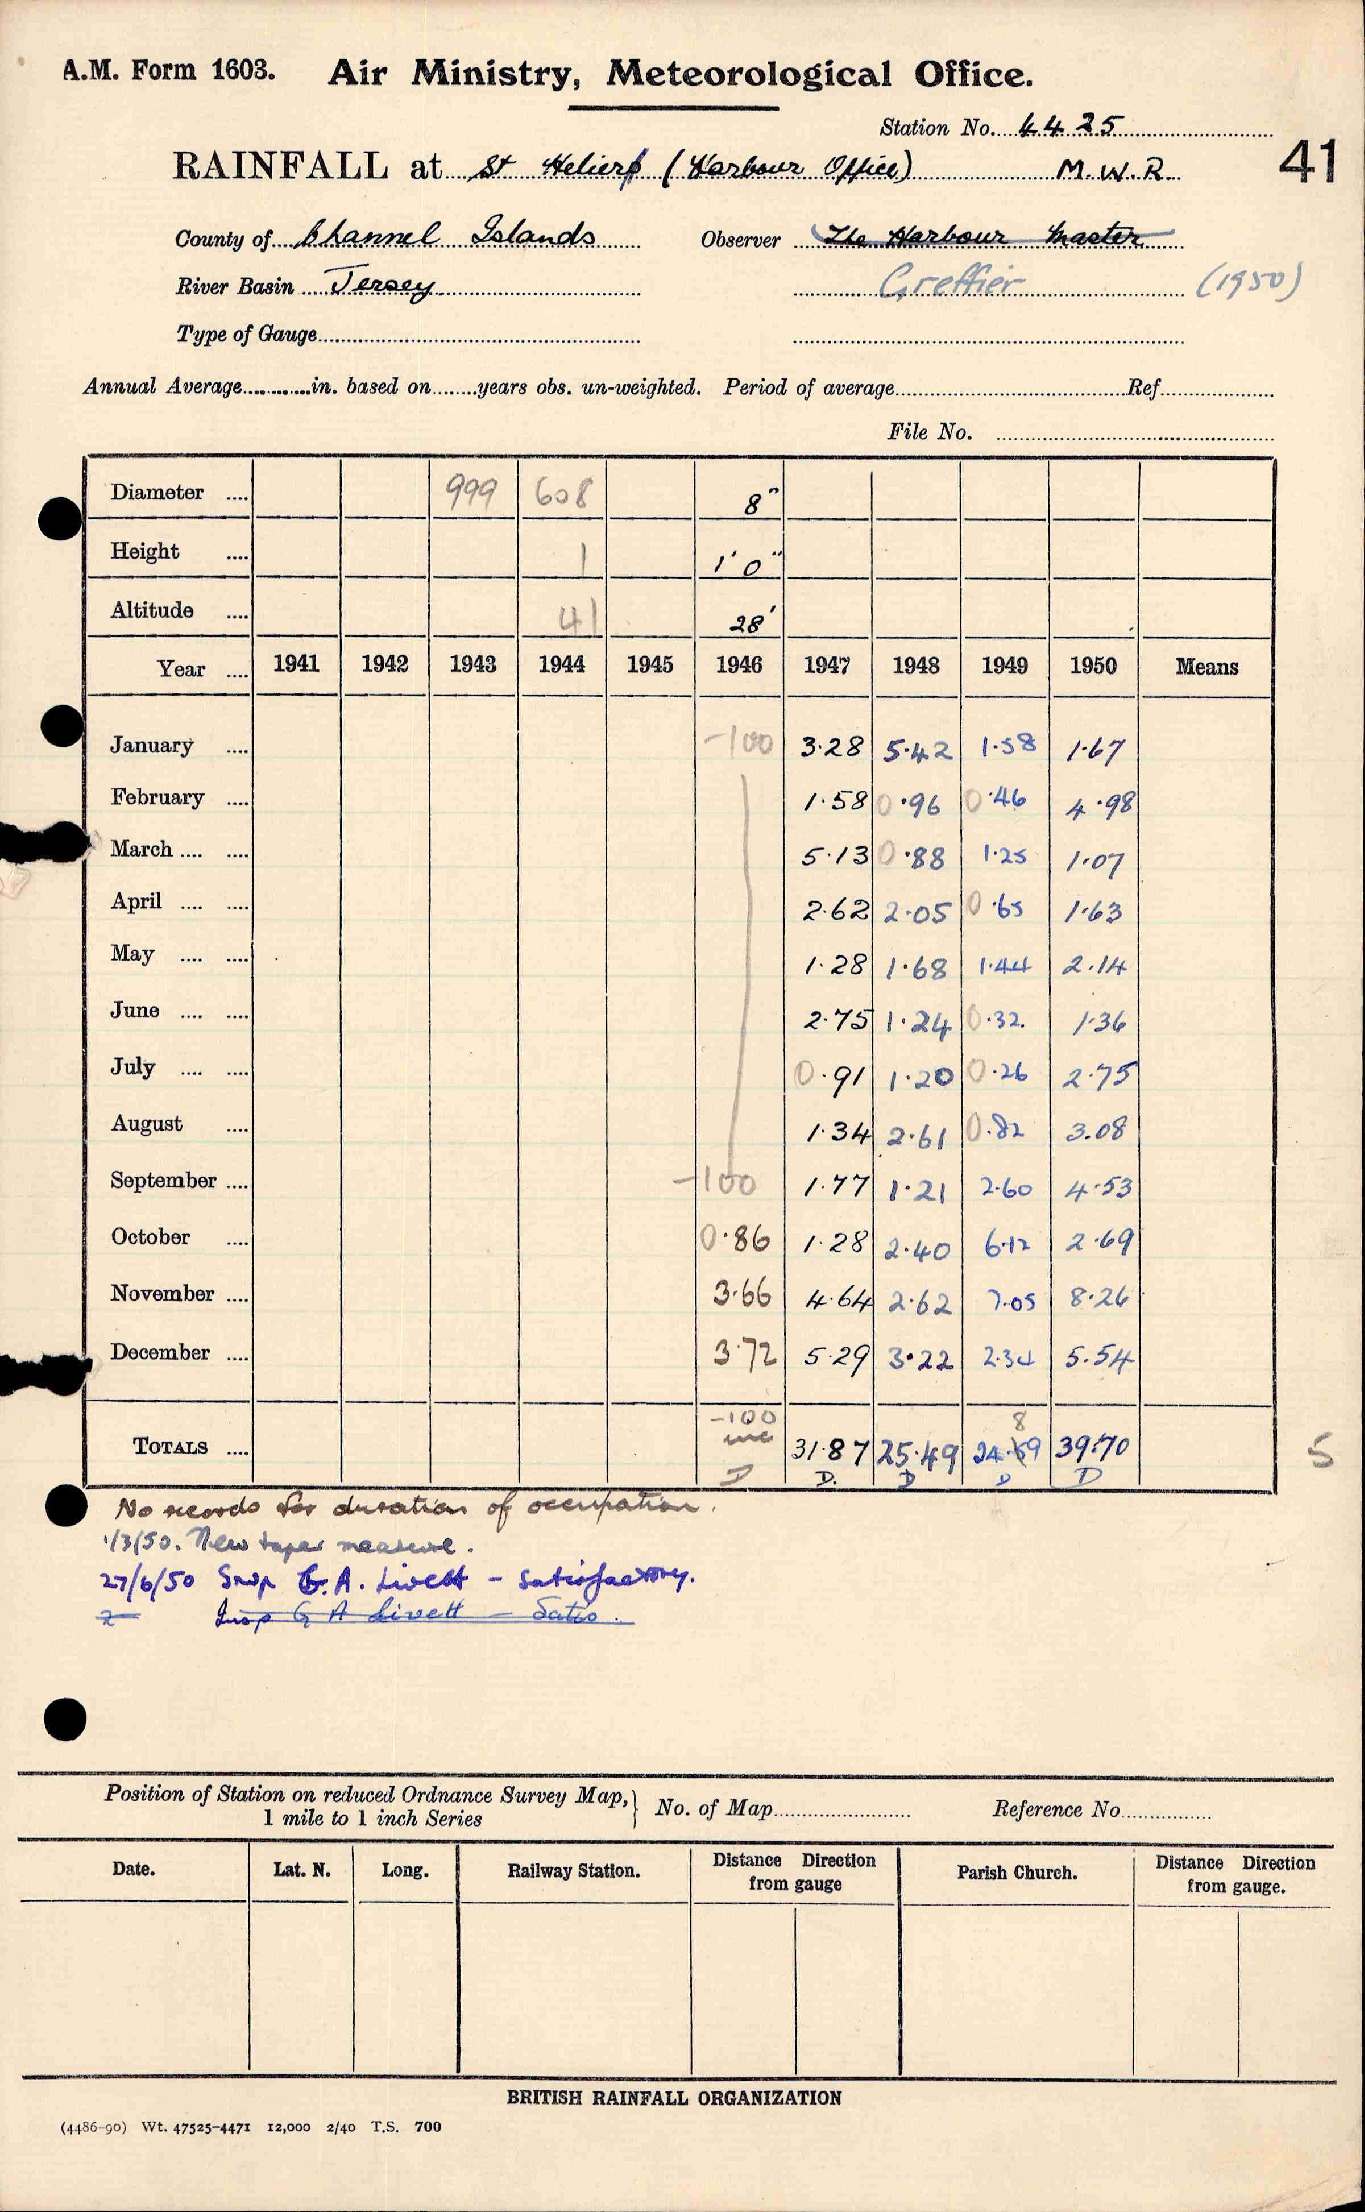 A.M. Form 1603. Air Ministry, Meteorological Office.
Station No. 4425
41
RAINFALL at St Heliers (Harbour Office) M.W.R.
County of Channel Islands Observer The Harbour Master
River Basin Jersey Greffier (1950)
Type of Gauge
Annual Average in. based on years obs. un-weighted. Period of average Ref
File No.
Diameter 999 608 8"
Height 1 1'0"
Altitude 41 28'
Year 1941 1942 1943 1944 1945 1946 1947 1948 1949 1950 Means
January -100 3.28 5.42 1.58 1.67
February 1.58 0.96 0.46 4.98
March 5.13 0.88 1.25 1.07
April 2.62 2.05 0.65 1.63
May 1.28 1.68 1.44 2.14
June 2.75 1.24 0.32 1.36
July 0.91 1.20 0.26 2.75
August 1.34 2.61 0.82 3.08
September -100 1.77 1.21 2.60 4.53
October 0.86 1.28 2.40 6.12 2.69
November 3.66 4.64 2.62 7.05 8.26
December 3.72 5.29 3.22 2.34 5.54
-100 8
TOTALS inc 31.87 25.49 24.59 39.70 5
D D. D D D
No records for duration of occupation.
1/3/50. New taper measure.
27/6/50 Insp G.A. Livett - Satisfactory.
2 Insp G A Livett - Satis.
Position of Station on reduced Ordnance Survey Map, 1 mile to 1 inch Series No. of Map Reference No
Date. Lat. N. Long. Railway Station. Distance Direction from gauge Parish Church. Distance Direction from gauge.
BRITISH RAINFALL ORGANIZATION
(4486-90) Wt. 47525-4471 12,000 2/40 T.S. 700